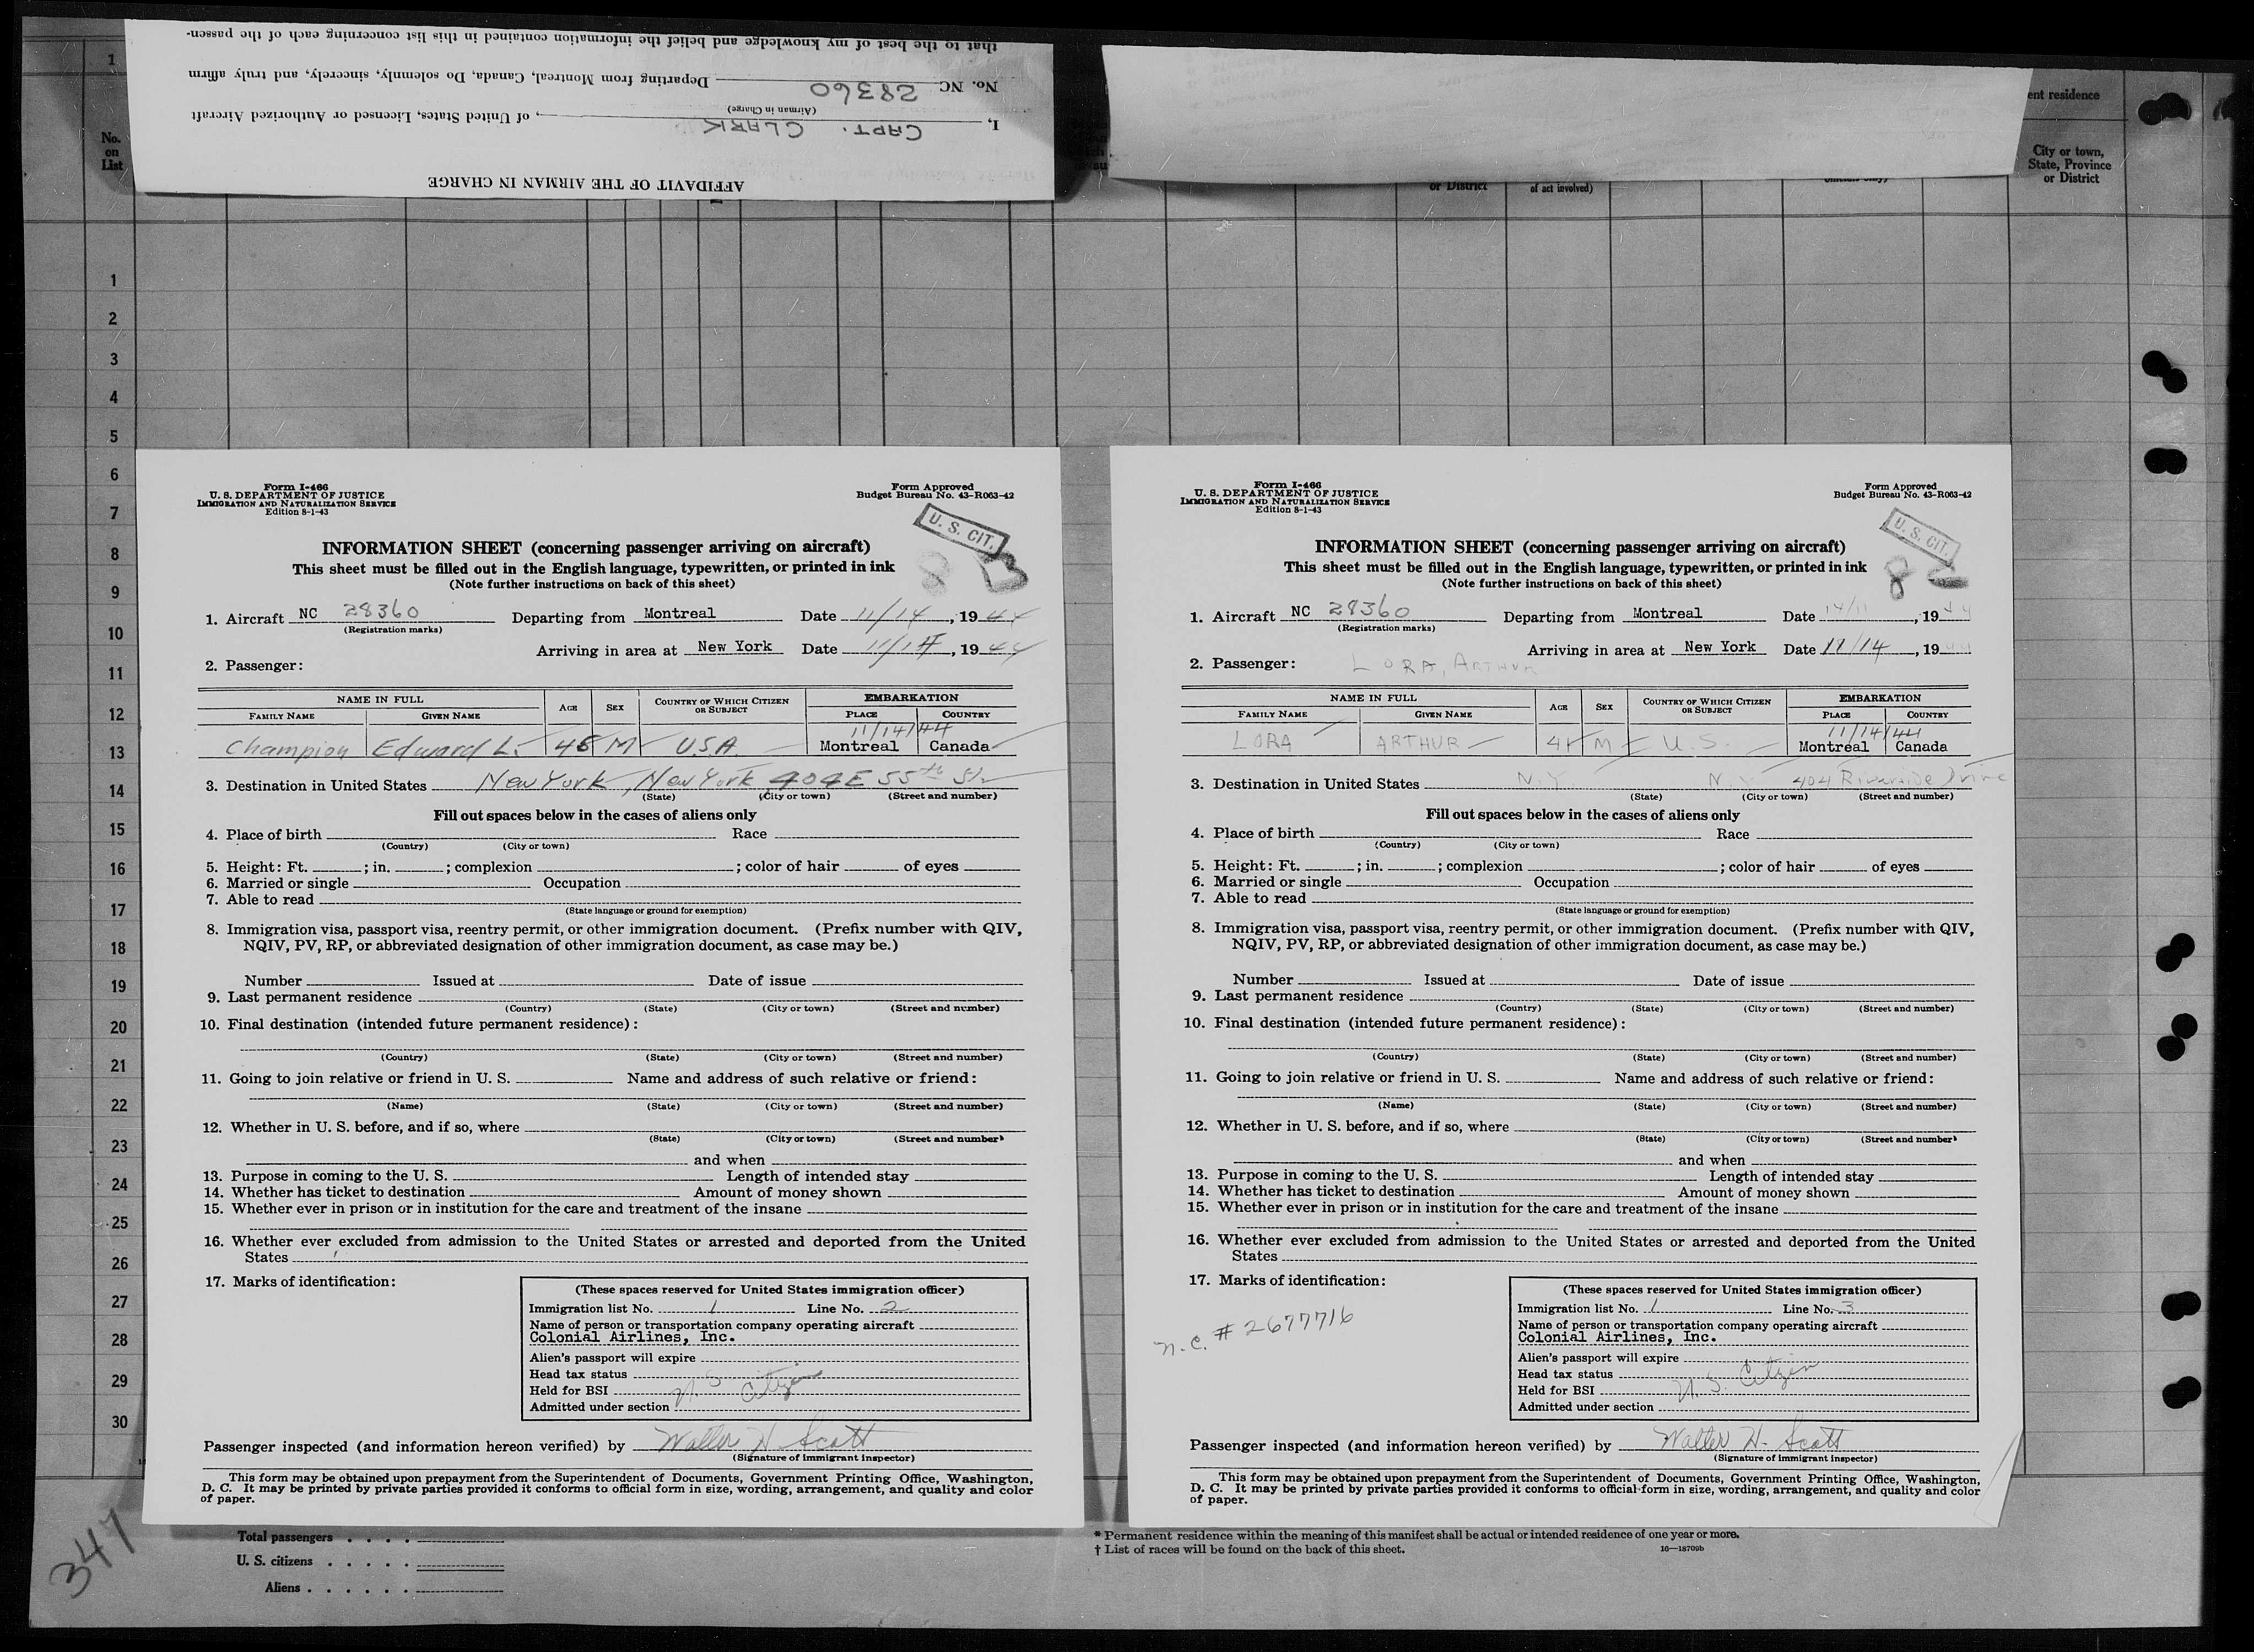 that to the best of my knowledge and belief the information contained in this list concerning each of the passen-
No. NC 28360 Departing from Montreal, Canada, Do solemnly, sincerely, and truly affirm
(Airman in Charge)
I, CAPT. CLARK, of United States, Licensed or Authorized Aircraft
AFFIDAVIT OF THE AIRMAN IN CHARGE
1
No.
on
List
or District
of act involved)
ent residence
City or town,
State, Province
or District
1
2
3
4
5
6
7
8
9
10
11
12
13
14
15
16
17
18
19
20
21
22
23
24
25
26
27
28
29
30
Form I-466
U. S. DEPARTMENT OF JUSTICE
IMMIGRATION AND NATURALIZATION SERVICE
Edition 8-1-43
Form Approved
Budget Bureau No. 43-R063-42
U. S. CIT.
8
INFORMATION SHEET (concerning passenger arriving on aircraft)
This sheet must be filled out in the English language, typewritten, or printed in ink
(Note further instructions on back of this sheet)
1. Aircraft NC 28360 Departing from Montreal Date 11/14, 1944
(Registration marks)
Arriving in area at New York Date 11/14, 1944
2. Passenger:
NAME IN FULL AGE SEX COUNTRY OF WHICH CITIZEN OR SUBJECT EMBARKATION
FAMILY NAME GIVEN NAME PLACE COUNTRY
11/14/44
Champion Edward L. M U.S.A. Montreal Canada
3. Destination in United States New York, New York 404 E 55th St
(State) (City or town) (Street and number)
Fill out spaces below in the cases of aliens only
4. Place of birth Race
(Country) (City or town)
5. Height: Ft. ; in. ; complexion ; color of hair of eyes
6. Married or single Occupation
7. Able to read
(State language or ground for exemption)
8. Immigration visa, passport visa, reentry permit, or other immigration document. (Prefix number with QIV,
NQIV, PV, RP, or abbreviated designation of other immigration document, as case may be.)
Number Issued at Date of issue
9. Last permanent residence
(Country) (State) (City or town) (Street and number)
10. Final destination (intended future permanent residence):
(Country) (State) (City or town) (Street and number)
11. Going to join relative or friend in U. S. Name and address of such relative or friend:
(Name) (State) (City or town) (Street and number)
12. Whether in U. S. before, and if so, where
(State) (City or town) (Street and number)
and when
13. Purpose in coming to the U. S. Length of intended stay
14. Whether has ticket to destination Amount of money shown
15. Whether ever in prison or in institution for the care and treatment of the insane
16. Whether ever excluded from admission to the United States or arrested and deported from the United
States
17. Marks of identification:
(These spaces reserved for United States immigration officer)
Immigration list No. 1 Line No. 2
Name of person or transportation company operating aircraft
Colonial Airlines, Inc.
Alien's passport will expire
Head tax status
Held for BSI U. S. Citizen
Admitted under section
Passenger inspected (and information hereon verified) by Walter H. Scott
(Signature of immigrant inspector)
This form may be obtained upon prepayment from the Superintendent of Documents, Government Printing Office, Washington,
D. C. It may be printed by private parties provided it conforms to official form in size, wording, arrangement, and quality and color
of paper.
Form I-466
U. S. DEPARTMENT OF JUSTICE
IMMIGRATION AND NATURALIZATION SERVICE
Edition 8-1-43
Form Approved
Budget Bureau No. 43-R063-42
U. S. CIT.
8
INFORMATION SHEET (concerning passenger arriving on aircraft)
This sheet must be filled out in the English language, typewritten, or printed in ink
(Note further instructions on back of this sheet)
1. Aircraft NC 28360 Departing from Montreal Date 14/11, 1944
(Registration marks)
Arriving in area at New York Date 11/14, 1944
2. Passenger: LORA, ARTHUR
NAME IN FULL AGE SEX COUNTRY OF WHICH CITIZEN OR SUBJECT EMBARKATION
FAMILY NAME GIVEN NAME PLACE COUNTRY
11/14/44
LORA ARTHUR 41 M U. S. Montreal Canada
3. Destination in United States N.Y. N.Y. 404 Riverside Drive
(State) (City or town) (Street and number)
Fill out spaces below in the cases of aliens only
4. Place of birth Race
(Country) (City or town)
5. Height: Ft. ; in. ; complexion ; color of hair of eyes
6. Married or single Occupation
7. Able to read
(State language or ground for exemption)
8. Immigration visa, passport visa, reentry permit, or other immigration document. (Prefix number with QIV,
NQIV, PV, RP, or abbreviated designation of other immigration document, as case may be.)
Number Issued at Date of issue
9. Last permanent residence
(Country) (State) (City or town) (Street and number)
10. Final destination (intended future permanent residence):
(Country) (State) (City or town) (Street and number)
11. Going to join relative or friend in U. S. Name and address of such relative or friend:
(Name) (State) (City or town) (Street and number)
12. Whether in U. S. before, and if so, where
(State) (City or town) (Street and number)
and when
13. Purpose in coming to the U. S. Length of intended stay
14. Whether has ticket to destination Amount of money shown
15. Whether ever in prison or in institution for the care and treatment of the insane
16. Whether ever excluded from admission to the United States or arrested and deported from the United
States
17. Marks of identification:
n.c. # 2677716
(These spaces reserved for United States immigration officer)
Immigration list No. 1 Line No. 3
Name of person or transportation company operating aircraft
Colonial Airlines, Inc.
Alien's passport will expire
Head tax status
Held for BSI U. S. Citizen
Admitted under section
Passenger inspected (and information hereon verified) by Walter H. Scott
(Signature of immigrant inspector)
This form may be obtained upon prepayment from the Superintendent of Documents, Government Printing Office, Washington,
D. C. It may be printed by private parties provided it conforms to official form in size, wording, arrangement, and quality and color
of paper.
347
Total passengers . . . .
U. S. citizens . . . . .
Aliens . . . . . .
* Permanent residence within the meaning of this manifest shall be actual or intended residence of one year or more.
† List of races will be found on the back of this sheet.
16—18709b